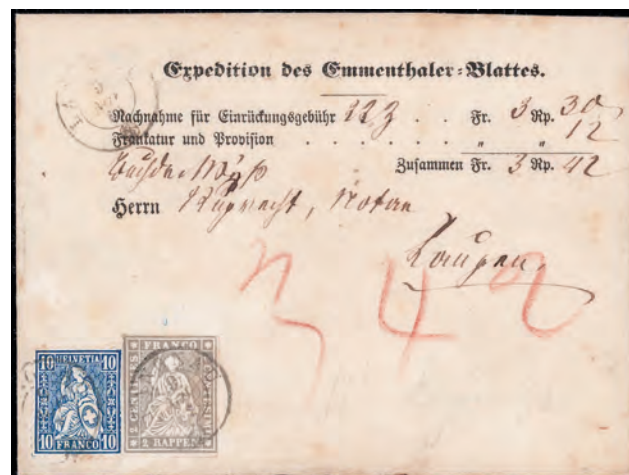 Expedition des Emmenthaler-Blattes.
Nachnahme für Einrückungsgebühr 22 Z . . Fr. 3 Rp. 30
Frankatur und Provision . . . . . . " " 12
Zusammen Fr. 3 Rp. 42
Herrn Ruprecht, Notar
Laupen
3 42
10 HELVETIA 10
10 FRANCO 10
FRANCO
2 CENTIMES
CENTESIMI
2 RAPPEN